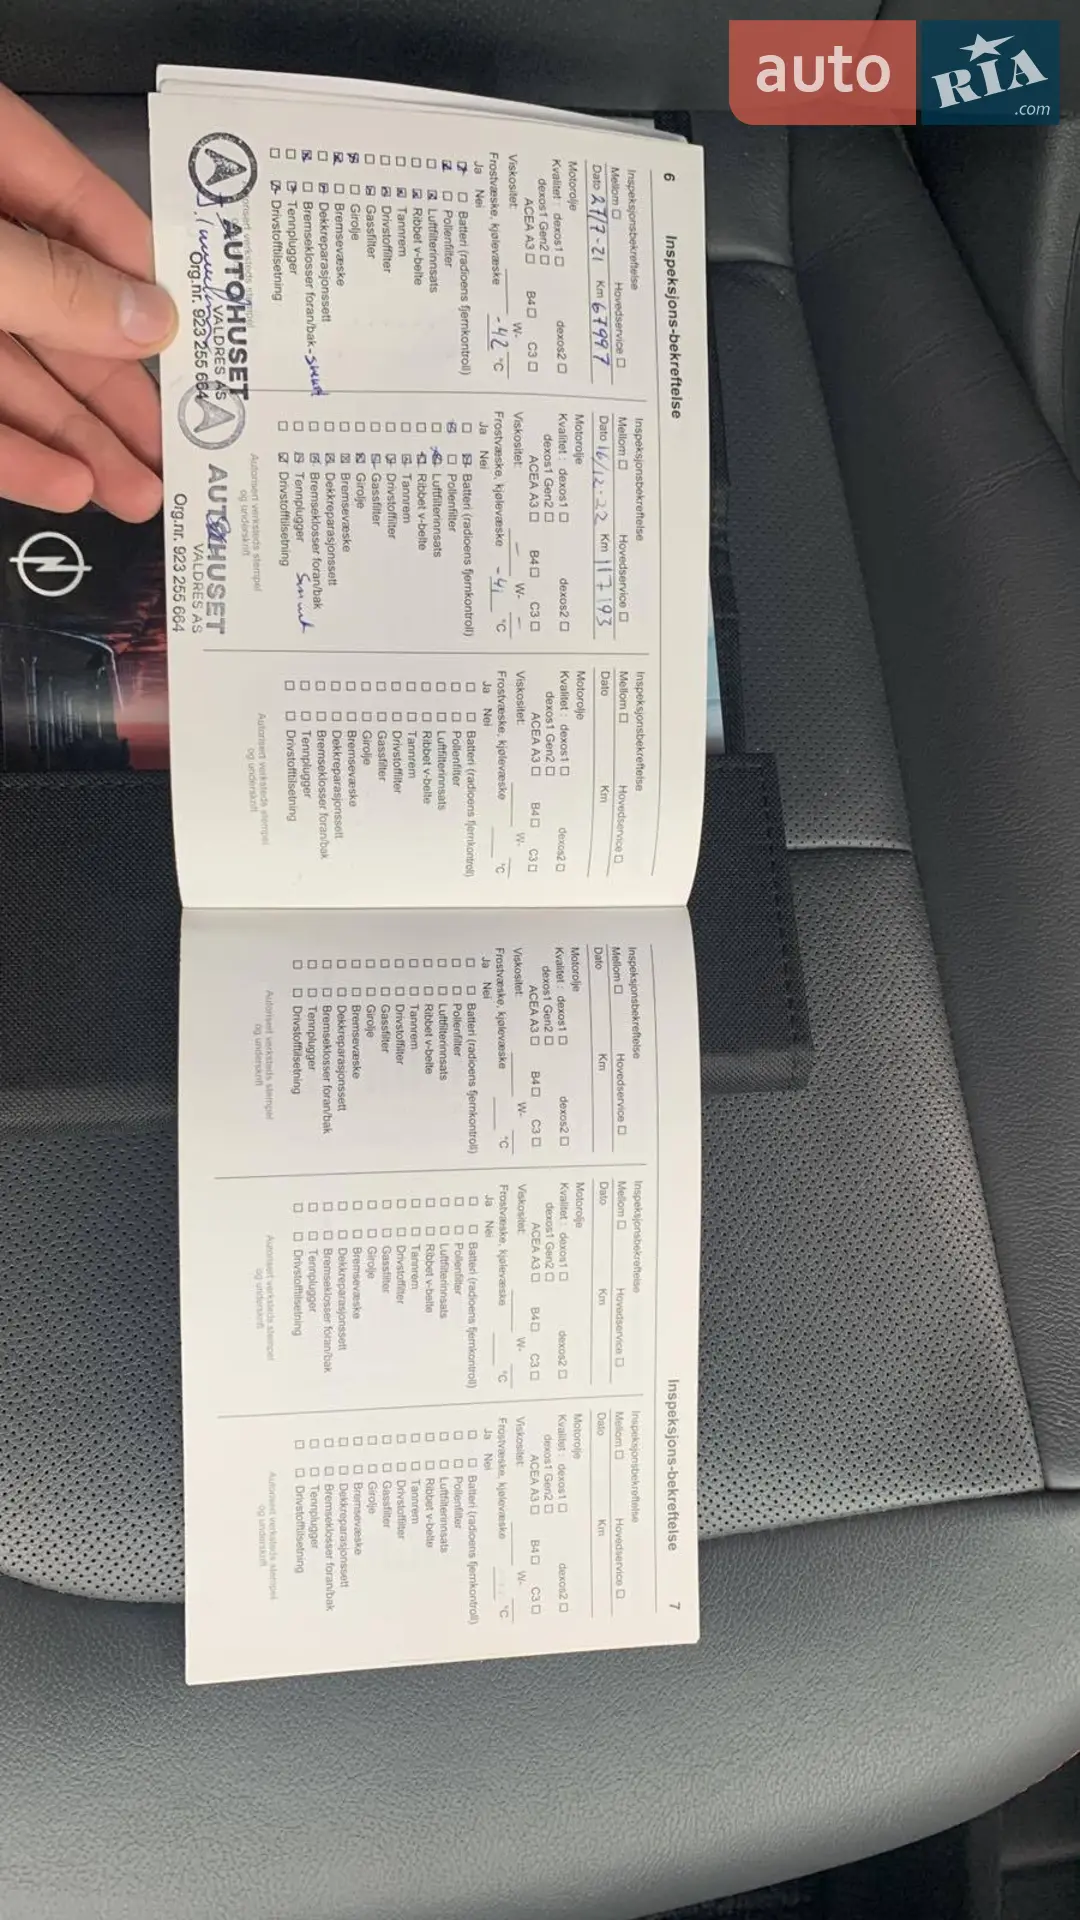 auto
RIA
.com
6 Inspeksjons-bekreftelse
Inspeksjonsbekreftelse
Mellom Hovedservice
Dato 27/7-21 Km 67997
Motorolje
Kvalitet: dexos1 dexos2
dexos1 Gen2
ACEA A3 B4 C3
Viskositet: W-
Frostvæske, kjølevæske -42 °C
Ja Nei
Batteri (radioens fjernkontroll)
Pollenfilter
Luftfilterinnsats
Ribbet v-belte
Tannrem
Drivstoffilter
Gassfilter
Girolje
Bremsevæske
Dekkreparasjonssett
Bremseklosser foran/bak - smurt
Tennplugger
Drivstofftilsetning
AUTOHUSET
VALDRES AS
Org.nr. 923 255 664
Inspeksjonsbekreftelse
Mellom Hovedservice
Dato 16/12-22 Km 117193
Motorolje
Kvalitet: dexos1 dexos2
dexos1 Gen2
ACEA A3 B4 C3
Viskositet: W-
Frostvæske, kjølevæske -41 °C
Ja Nei
Batteri (radioens fjernkontroll)
Pollenfilter
Luftfilterinnsats
Ribbet v-belte
Tannrem
Drivstoffilter
Gassfilter
Girolje
Bremsevæske
Dekkreparasjonssett
Bremseklosser foran/bak
Tennplugger Smurt
Drivstofftilsetning
Autorisert verksteds stempel
og underskrift
AUTOHUSET
VALDRES AS
Org.nr. 923 255 664
Inspeksjonsbekreftelse
Mellom Hovedservice
Dato Km
Motorolje
Kvalitet: dexos1 dexos2
dexos1 Gen2
ACEA A3 B4 C3
Viskositet: W-
Frostvæske, kjølevæske °C
Ja Nei
Batteri (radioens fjernkontroll)
Pollenfilter
Luftfilterinnsats
Ribbet v-belte
Tannrem
Drivstoffilter
Gassfilter
Girolje
Bremsevæske
Dekkreparasjonssett
Bremseklosser foran/bak
Tennplugger
Drivstofftilsetning
Autorisert verksteds stempel
og underskrift
Inspeksjons-bekreftelse 7
Inspeksjonsbekreftelse
Mellom Hovedservice
Dato Km
Motorolje
Kvalitet: dexos1 dexos2
dexos1 Gen2
ACEA A3 B4 C3
Viskositet: W-
Frostvæske, kjølevæske °C
Ja Nei
Batteri (radioens fjernkontroll)
Pollenfilter
Luftfilterinnsats
Ribbet v-belte
Tannrem
Drivstoffilter
Gassfilter
Girolje
Bremsevæske
Dekkreparasjonssett
Bremseklosser foran/bak
Tennplugger
Drivstofftilsetning
Autorisert verksteds stempel
og underskrift
Inspeksjonsbekreftelse
Mellom Hovedservice
Dato Km
Motorolje
Kvalitet: dexos1 dexos2
dexos1 Gen2
ACEA A3 B4 C3
Viskositet: W-
Frostvæske, kjølevæske °C
Ja Nei
Batteri (radioens fjernkontroll)
Pollenfilter
Luftfilterinnsats
Ribbet v-belte
Tannrem
Drivstoffilter
Gassfilter
Girolje
Bremsevæske
Dekkreparasjonssett
Bremseklosser foran/bak
Tennplugger
Drivstofftilsetning
Autorisert verksteds stempel
og underskrift
Inspeksjonsbekreftelse
Mellom Hovedservice
Dato Km
Motorolje
Kvalitet: dexos1 dexos2
dexos1 Gen2
ACEA A3 B4 C3
Viskositet: W-
Frostvæske, kjølevæske °C
Ja Nei
Batteri (radioens fjernkontroll)
Pollenfilter
Luftfilterinnsats
Ribbet v-belte
Tannrem
Drivstoffilter
Gassfilter
Girolje
Bremsevæske
Dekkreparasjonssett
Bremseklosser foran/bak
Tennplugger
Drivstofftilsetning
Autorisert verksteds stempel
og underskrift